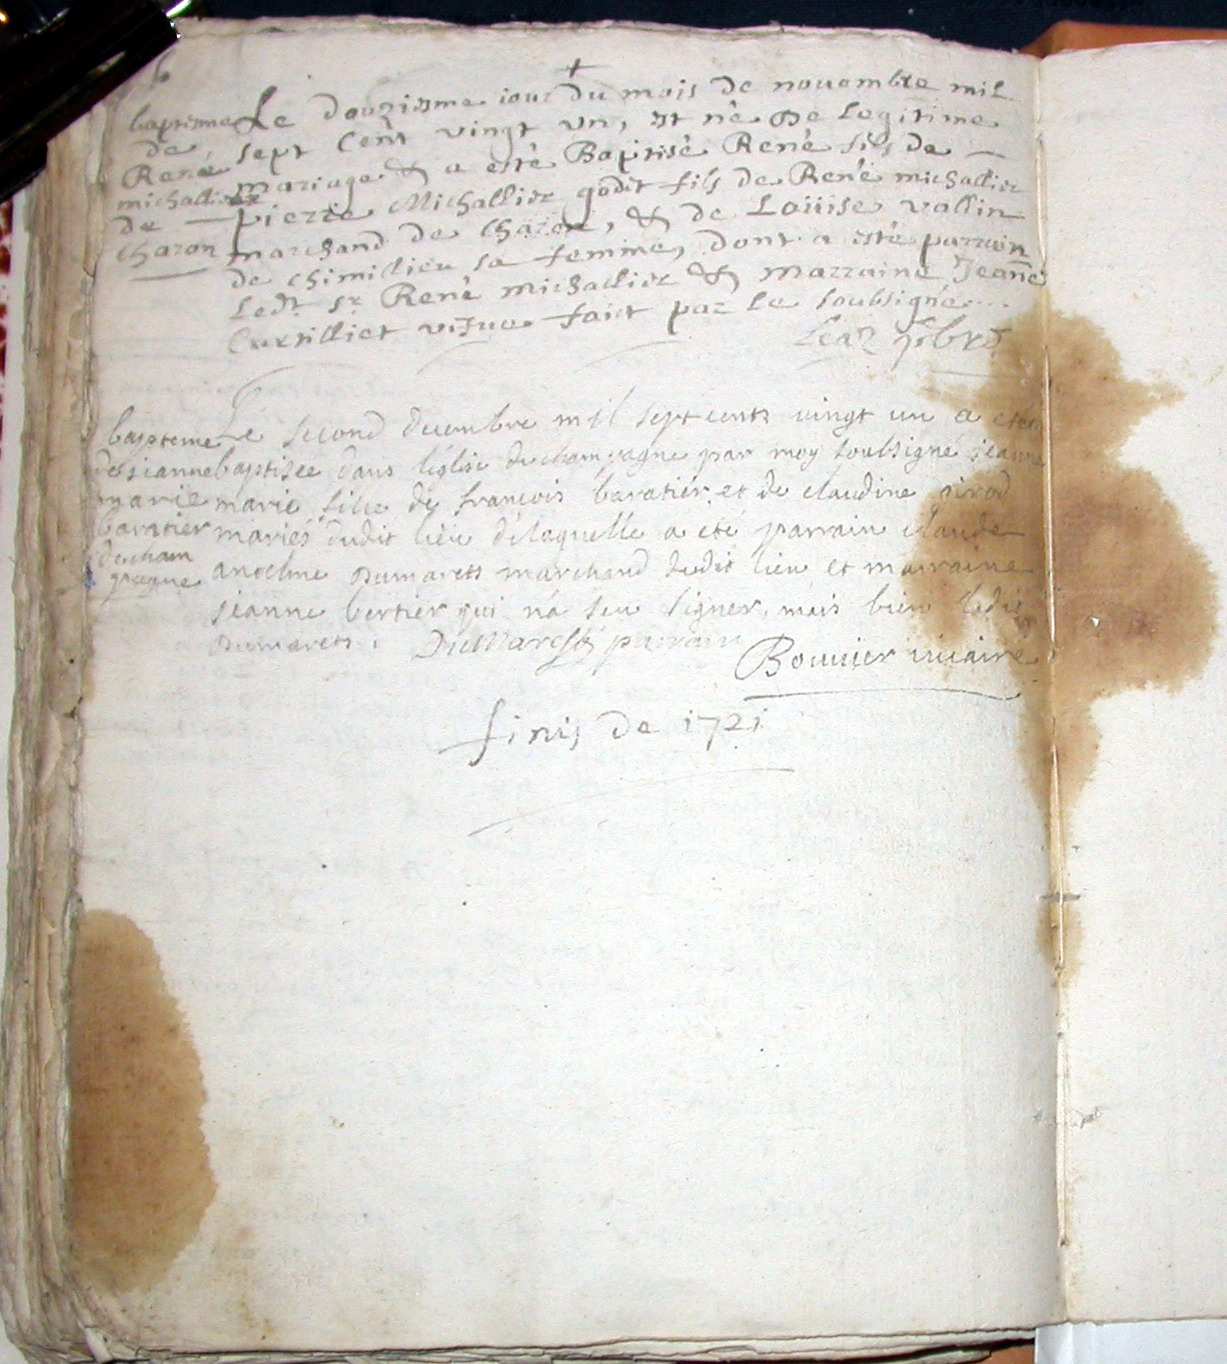 baptesme
de
René
michallier
de
charon
Le douziesme iour du mois de nouembre mil
sept Cent vingt vn, est né de Legitime
mariage & a esté Baptisé René fils de
pierre Michallier fils de René michallier
marchand de charon, & de Loüise vallin
de chimillieu sa femme, dont a esté parrain
Ledt. sr. René michallier & marraine Jeane
Curtilliet faict par Le soubsigné
bapteme
de jeanne
marie
baratier
de cham
pagne
Le second decembre mil sept cents vingt un a eté
baptisée dans l'église de champagne par moy soubsigné jeanne
marie fille de françois baratier et de claudine
mariés dudit lieu de laquelle a eté parrain claude
antelme Dumarets marchand dudit lieu et marraine
jeanne bertier qui n'a seu signer, mais bien ledit
Dumarets. DuMarest parrain
Bouuier vicaire
finis de 1721